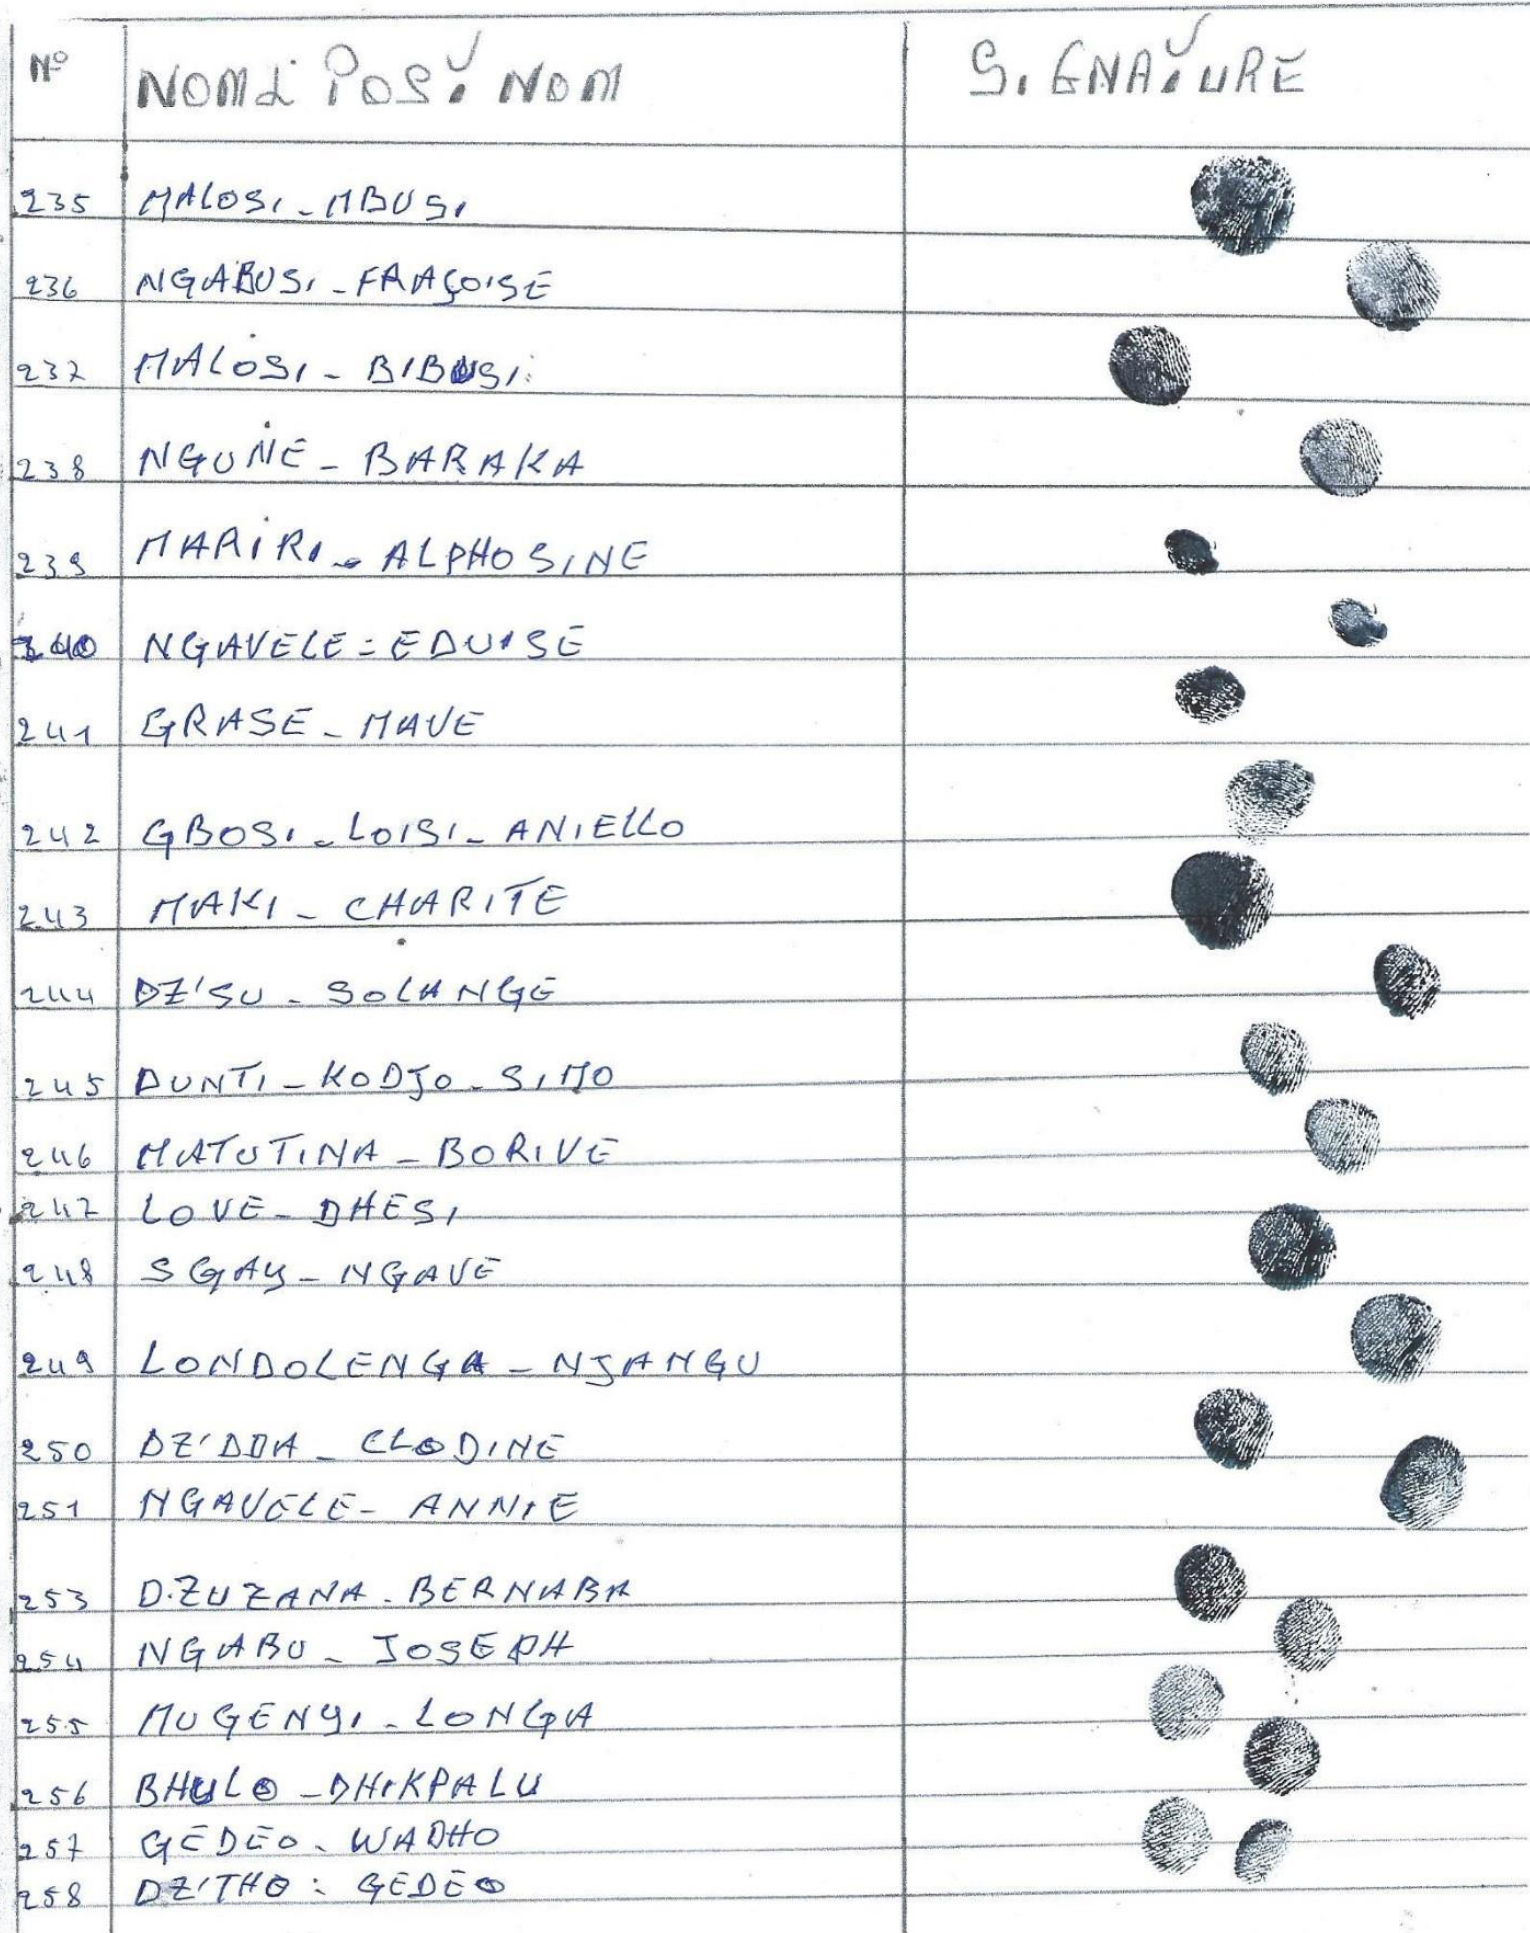 N° NOM & POST NOM SIGNATURE
235 MALOSI - MBUSI
236 NGABUSI - FRAÇOISE
237 MALOSI - BIBUSI
238 NGUNE - BARAKA
239 MARIRI - ALPHOSINE
240 NGAVELE = EDUISE
241 GRASE - MAVE
242 GBOSI - LOISI - ANIELLO
243 MAKI - CHARITE
244 DZ'SU - SOLANGE
245 DUNTI - KODJO - SIMO
246 MATUTINA - BORIVE
247 LOVE - DHESI
248 SGAY - NGAVE
249 LONDOLENGA - NJANGU
250 DZ'DDA - CLODINE
251 NGAVELE - ANNIE
253 D.ZUZANA - BERNABA
254 NGABU - JOSEPH
255 MUGENYI - LONGA
256 BHULO - DHIKPALU
257 GEDEO - WADHO
258 DZ'THO : GEDEO